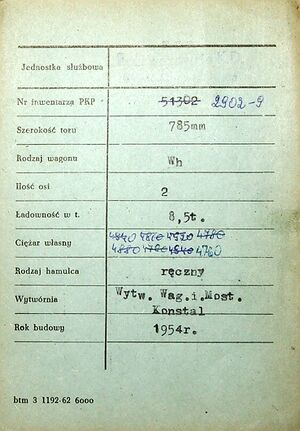 Jednostka służbowa
Nr inwentarza PKP 51302 2902-9
Szerokość toru 785mm
Rodzaj wagonu Wh
Ilość osi 2
Ładowność w t. 8,5t.
Ciężar własny 4840 4860 4920 4780
4880 4760 4840 4760
Rodzaj hamulca ręczny
Wytwórnia Wytw. Wag.i.Most.
Konstal
Rok budowy 1954r.
btm 3 1192-62 6000